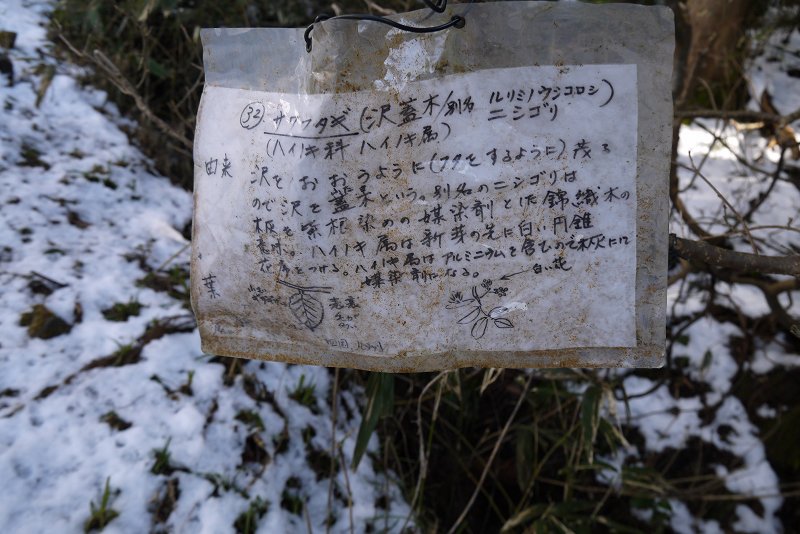 32 サワフタギ(沢蓋木/別名 ルリミノウシコロシ)
ニシゴリ
(ハイノキ科 ハイノキ属)
由来 沢をおおうように(フタをするように)茂る
ので沢を蓋木という。別名のニシゴリは
根染めの媒染剤とした錦織木の
ハイノキ属は新芽の先に白い円錐
をつける。ハイノキ属はアルミニウムを含むので木灰にして
媒染剤になる。
葉
白い花